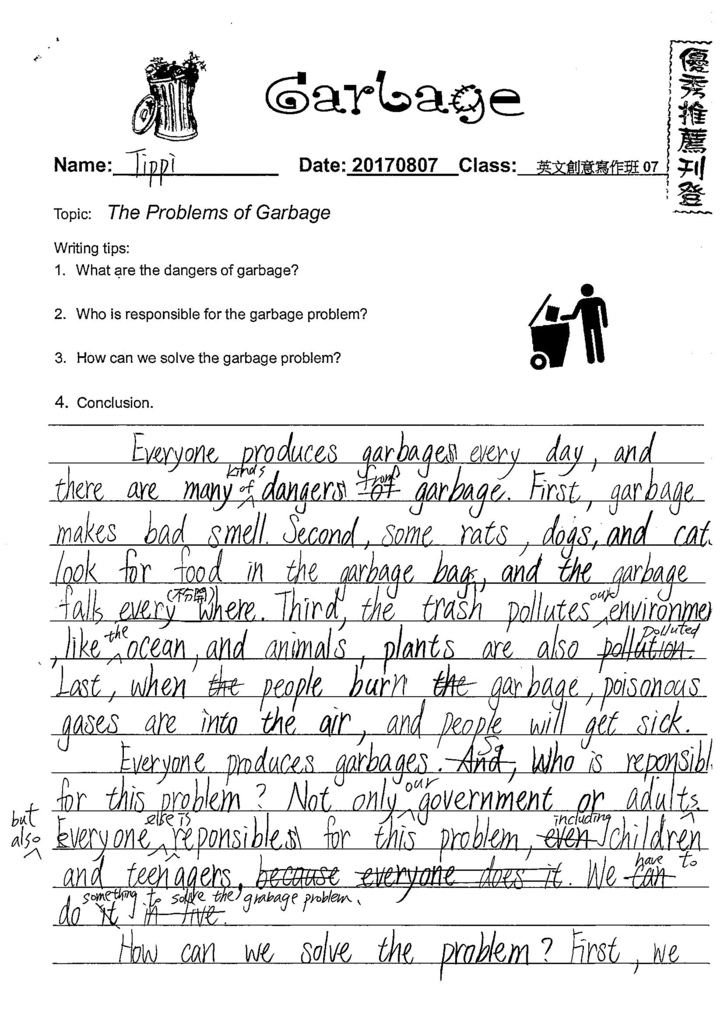 Garbage
優秀推薦刊登
Name: Tippi Date: 20170807 Class: 英文創意寫作班 07
Topic: The Problems of Garbage
Writing tips:
1. What are the dangers of garbage?
2. Who is responsible for the garbage problem?
3. How can we solve the garbage problem?
4. Conclusion.
Everyone produces garbages every day, and
kinds from
there are many of dangers of garbage. First, garbage
makes bad smell. Second, some rats, dogs, and cat
look for food in the garbage bag, and the garbage
(不分開) our
falls every where. Third, the trash pollutes environme
the polluted
, like ocean, and animals, plants are also pollution.
Last, when the people burn the garbage, poisonous
gases are into the air, and people will get sick.
So
Everyone produces garbages. And, Who is reponsibl
our
for this problem? Not only government or adults.
but also else is including
Everyone reponsible for this problem, even children
have to
and teenagers, because everyone does it. We can
something to solve the grabage problem.
do it in live.
How can we solve the problem? First, we